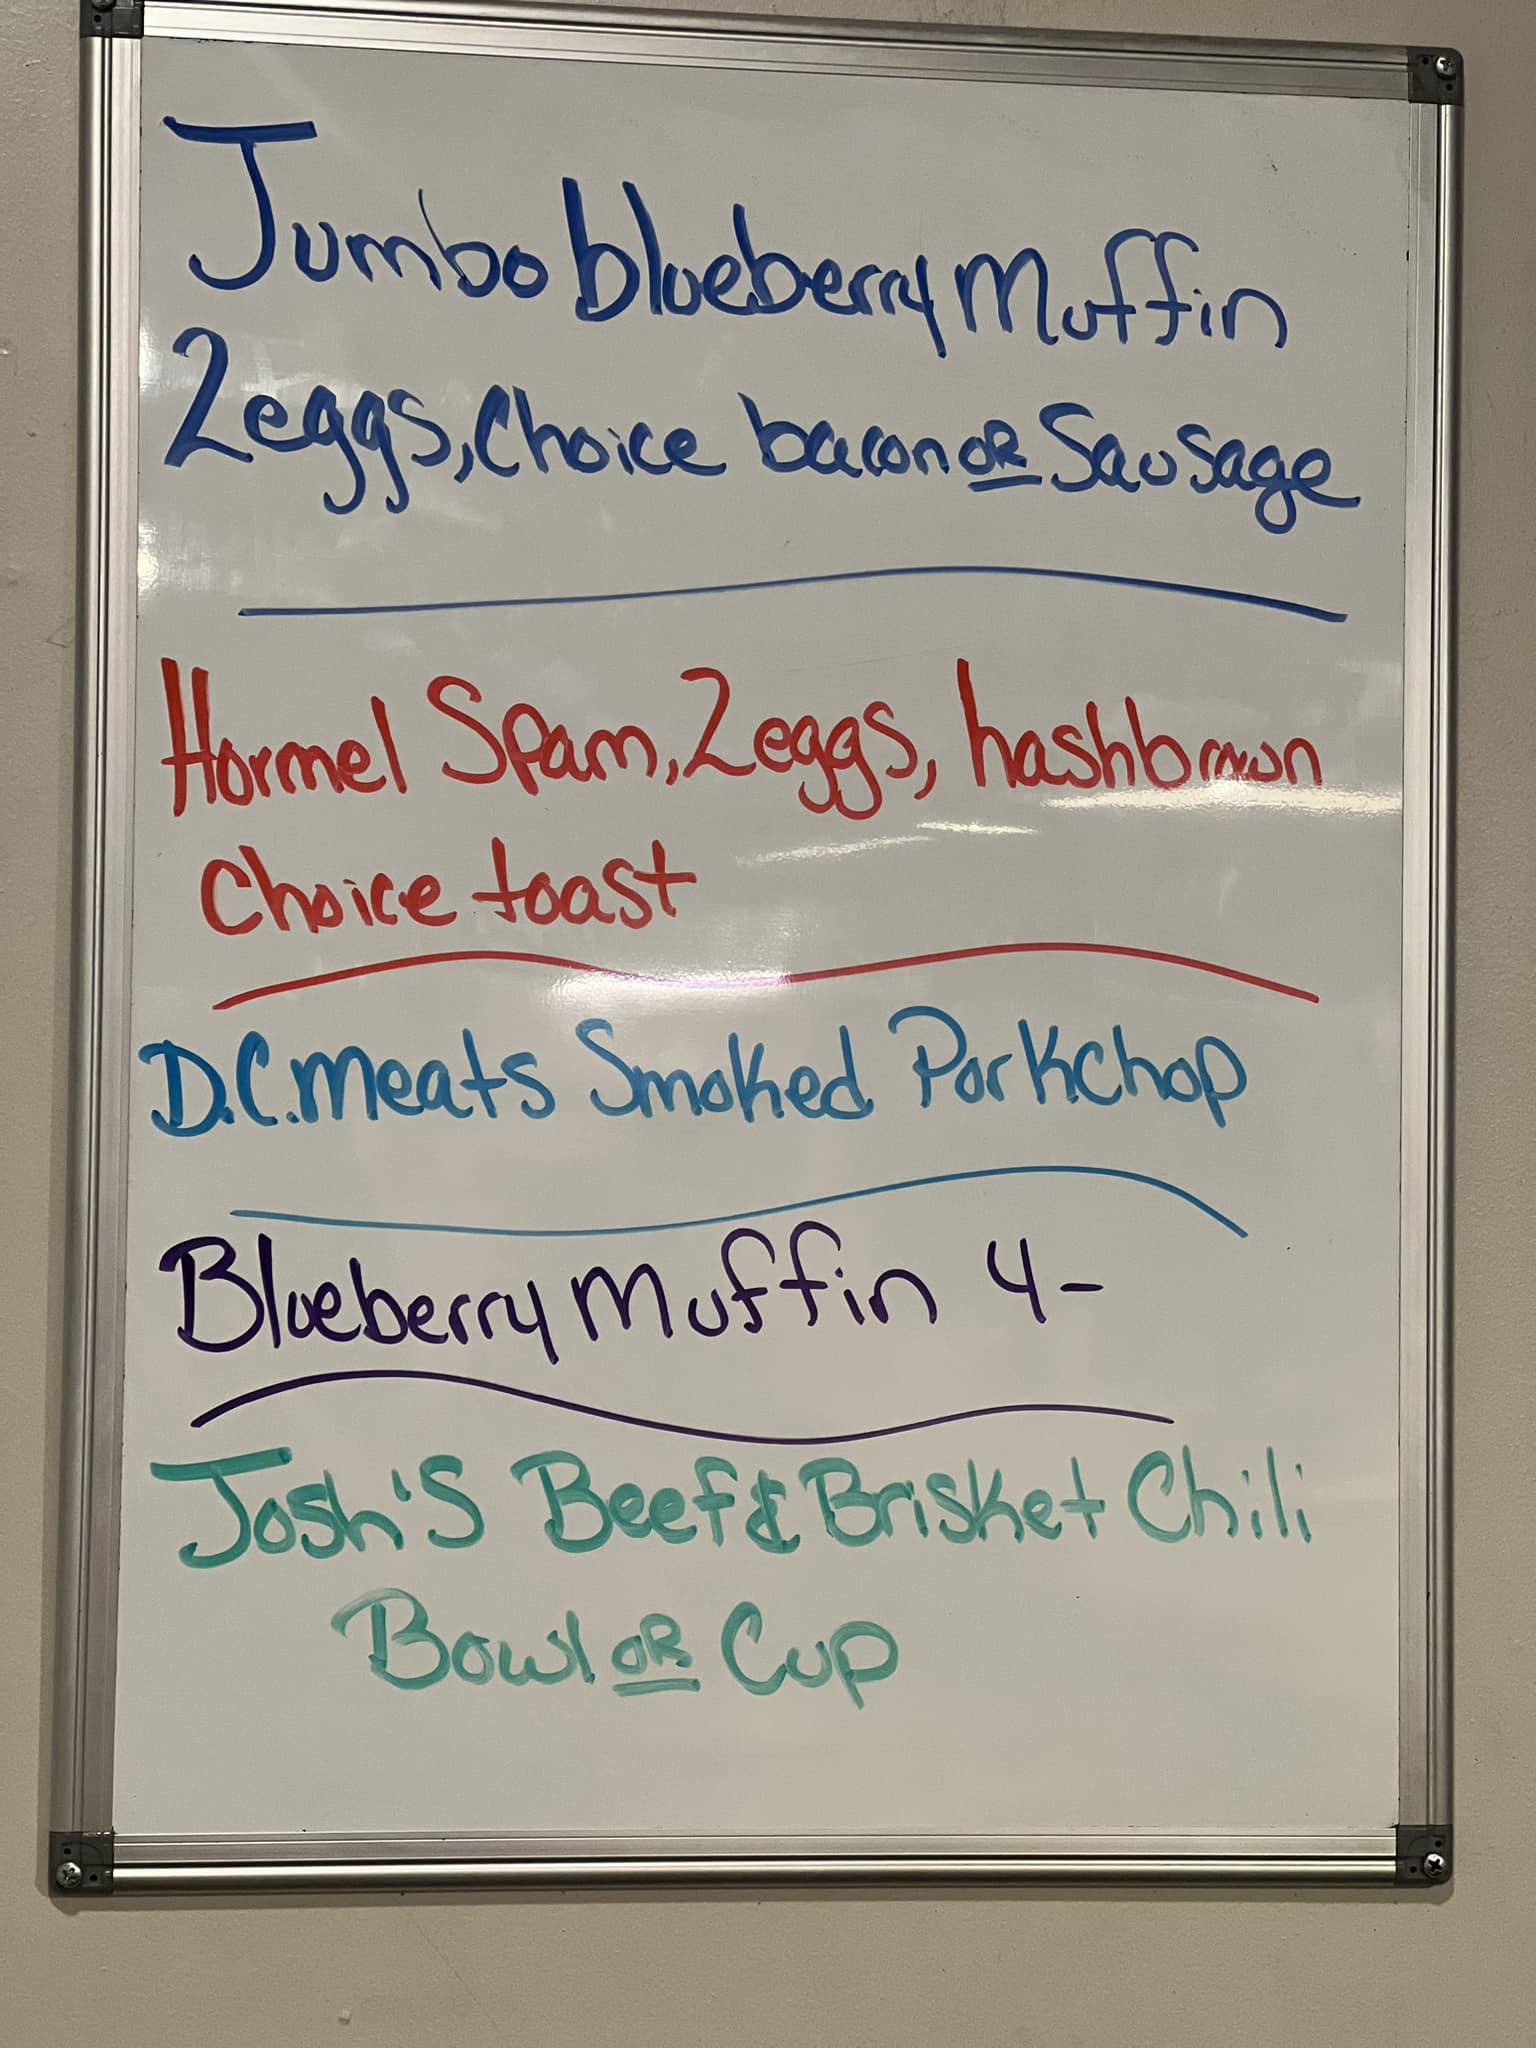 Jumbo blueberry Muffin
2 eggs, Choice bacon OR Sausage
Hormel Spam, 2 eggs, hashbrown
Choice toast
D.C. Meats Smoked Porkchop
Blueberry Muffin 4-
Josh's Beef & Brisket Chili
Bowl OR Cup